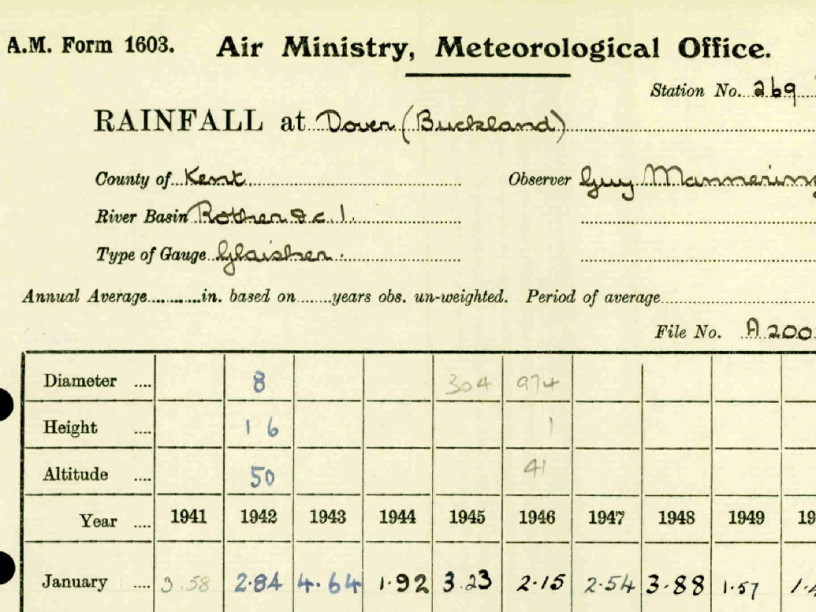 A.M. Form 1603. Air Ministry, Meteorological Office.
Station No. 269
RAINFALL at Dover (Buckland)
County of Kent Observer Guy Mannering
River Basin Rother &c 1.
Type of Gauge Glaisher.
Annual Average............in. based on.......years obs. un-weighted. Period of average
File No. A200
Diameter .... 8 304 974
Height .... 16 1
Altitude .... 50 41
Year .... 1941 1942 1943 1944 1945 1946 1947 1948 1949
January .... 3.58 2.84 4.64 1.92 3.23 2.15 2.54 3.88 1.57